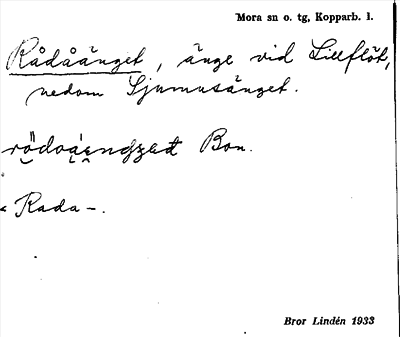 Mora sn o. tg, Kopparb. l.
Rådåänget, änge vid Lillflöt,
nedom Sjumusänget.
Bon.
< Rada -.
Bror Lindén 1933